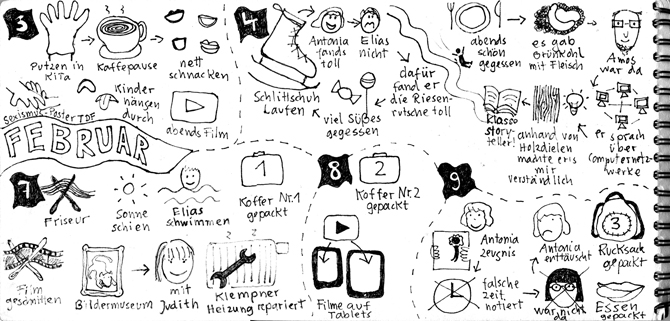 3
Putzen in
Kita
Kaffepause
nett
schnacken
Sexismus-Poster TDF
Kinder
hängen
durch
abends Film
FEBRUAR
4
Schlittschuh
Laufen
Antonia
fands
toll
Elias
nicht
dafür
fand er
die Riesen-
rutsche toll
viel Süßes
gegessen
abends
schön
gegessen
es gab
Grünkohl
mit Fleisch
Amos
war da
er sprach
über
Computernetz-
werke
anhand von
Holzdielen
machte er's
mir
verständlich
Klasse
story-
teller!
7
Friseur
Sonne
schien
Elias
schwimmen
1
Koffer Nr.1
gepackt
Film
geschnitten
Bildermuseum
mit
Judith
Klempner
Heizung repariert
8
2
Koffer Nr.2
gepackt
Filme auf
Tablets
9
Antonia
zeugnis
falsche
zeit
notiert
Antonia
enttäuscht
war nicht
da
3
Rucksack
gepackt
Essen
gepackt